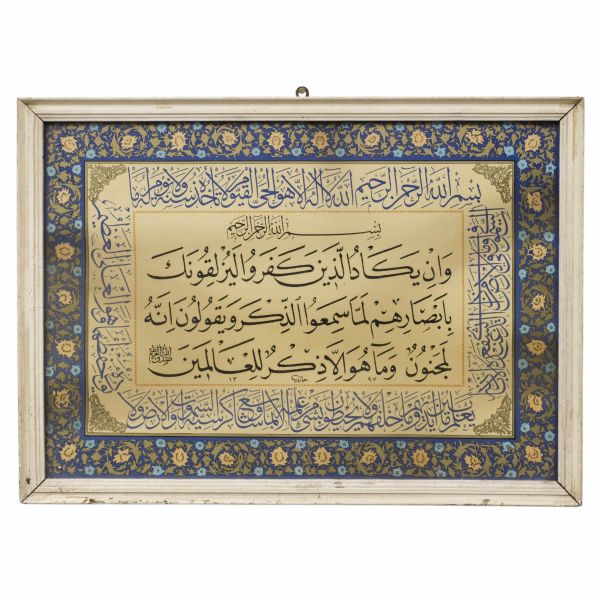 بسم الله الرحمن الرحيم الله لا اله الا هو الحي القيوم لا تأخذه سنة ولا نوم له ما
بسم الله الرحمن الرحيم
وان يكاد الذين كفروا ليزلقونك
بابصارهم لما سمعوا الذكر ويقولون انه
لمجنون وما هو الا ذكر للعالمين
يعلم ما بين ايديهم وما خلفهم ولا يحيطون بشيء من علمه الا بما شاء وسع كرسيه السموات والارض ولا